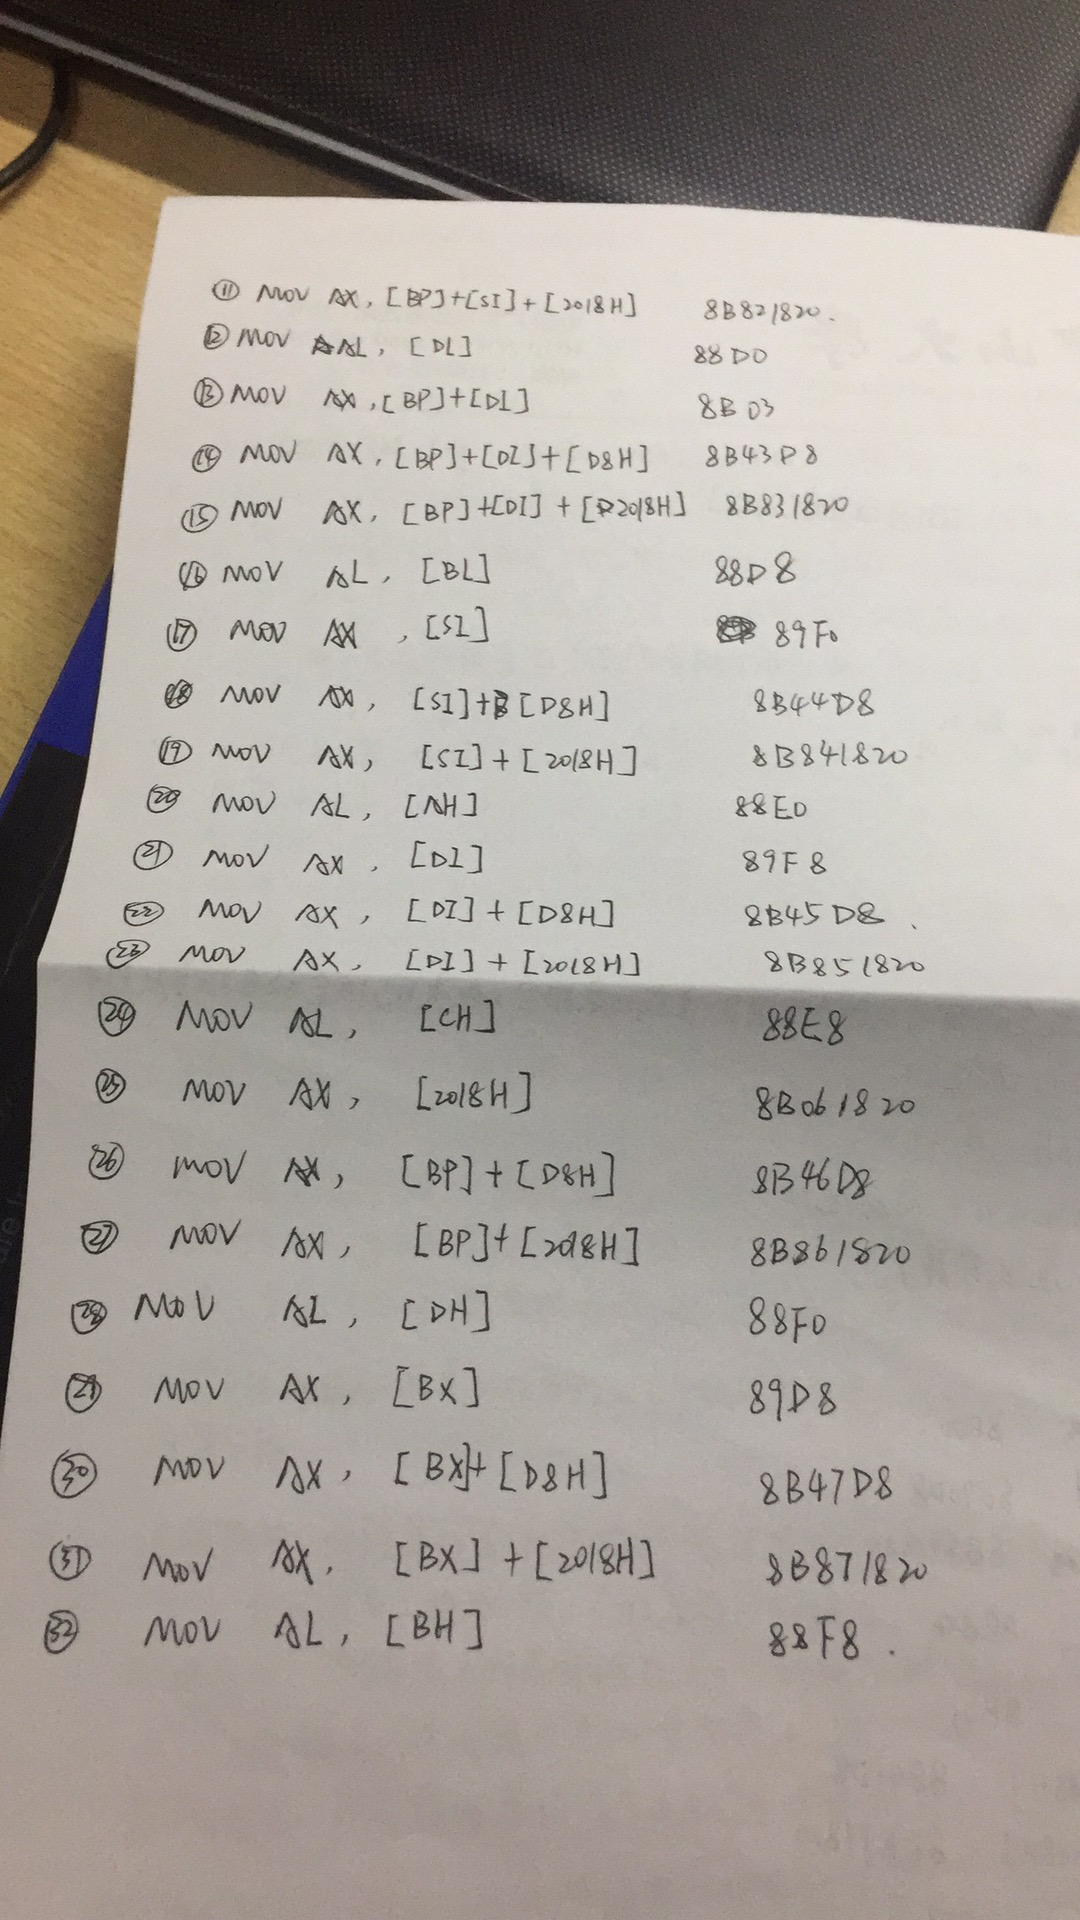 ⑪ MOV AX, [BP]+[SI]+[2018H] 8B821820.
⑫ MOV AL, [DL] 88D0
⑬ MOV AX, [BP]+[DI] 8B03
⑭ MOV AX, [BP]+[DI]+[D8H] 8B43D8
⑮ MOV AX, [BP]+[DI]+[2018H] 8B831820
⑯ MOV AL, [BL] 88D8
⑰ MOV AX, [SI] 89F0
⑱ MOV AX, [SI]+[D8H] 8B44D8
⑲ MOV AX, [SI]+[2018H] 8B841820
⑳ MOV AL, [AH] 88E0
㉑ MOV AX, [DI] 89F8
㉒ MOV AX, [DI]+[D8H] 8B45D8.
㉓ MOV AX, [DI]+[2018H] 8B851820
㉔ MOV AL, [CH] 88E8
㉕ MOV AX, [2018H] 8B061820
㉖ MOV AX, [BP]+[D8H] 8B46D8
㉗ MOV AX, [BP]+[2018H] 8B861820
㉘ MOV AL, [DH] 88F0
㉙ MOV AX, [BX] 89D8
㉚ MOV AX, [BX]+[D8H] 8B47D8
㉛ MOV AX, [BX]+[2018H] 8B871820
㉜ MOV AL, [BH] 88F8.